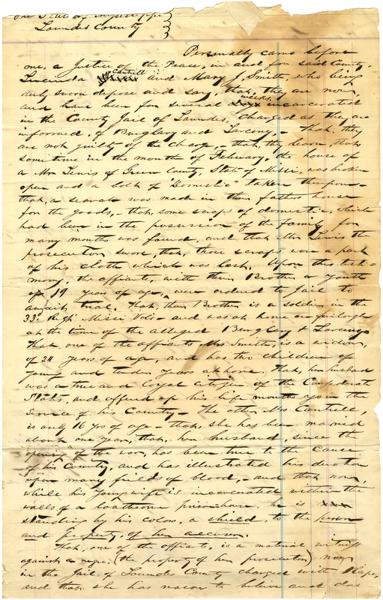 The State of Mississippi
Lowndes County
Personally came before
me, a Justice of the Peace, in and for said County,
Lucinda Cantrell and Mary J. Smith, who being
duly sworn depose and say, that, they are now,
and have been for several weeks incarcerated
in the County Jail of Lowndes, charged as they are
informed, of Burglary and Larceny. That, they
are not guilty of the charge, that, they learn that
sometime in the month of February, the house of
a Mr Lewis of County, State of Missi, was broken
open and a bolt of Domestic taken therefrom
that, a search was made in their father's house
for the goods, that, some scraps of domestic, which
had been in the possession of the family for
many months was found, and that Mr Lewis the
prosecutor swore, that, those scraps were a part
of his cloth which was lost. Upon this testi-
mony, the affiants, with their Brother a youth
of 19 years of age, were ordered to Jail to
await trial. That, their Brother is a soldier in the
33d Regt Missi Vols and was at home on furlough
at the time of the alleged Burglary & Larceny
That one of the affiants Mrs Smith, is a widow,
of 24 years of age, and has two children of
young and tender years at home. That, her husband
was a true and loyal citizen of the Confederate
States, and offered up his life months ago in the
service of his County. The other, Mrs Cantrell
is only 16 yrs of age that, she has been married
about one year, that, her husband since the
opening of the war, has been true to the Cause
of his County, and has illustrated his devotion
upon many field of blood, and that now,
while his young wife is incarcerated within the
walls of a loathsome prison house, he is
standing by his colors, a shield to the person
and property of her accusers.
That, one of the affiants, is a material witness
against a negro, (the property of her prosecutor) now
in the Jail of Lowndes County charged with Rape,
and that she has reason to believe and does